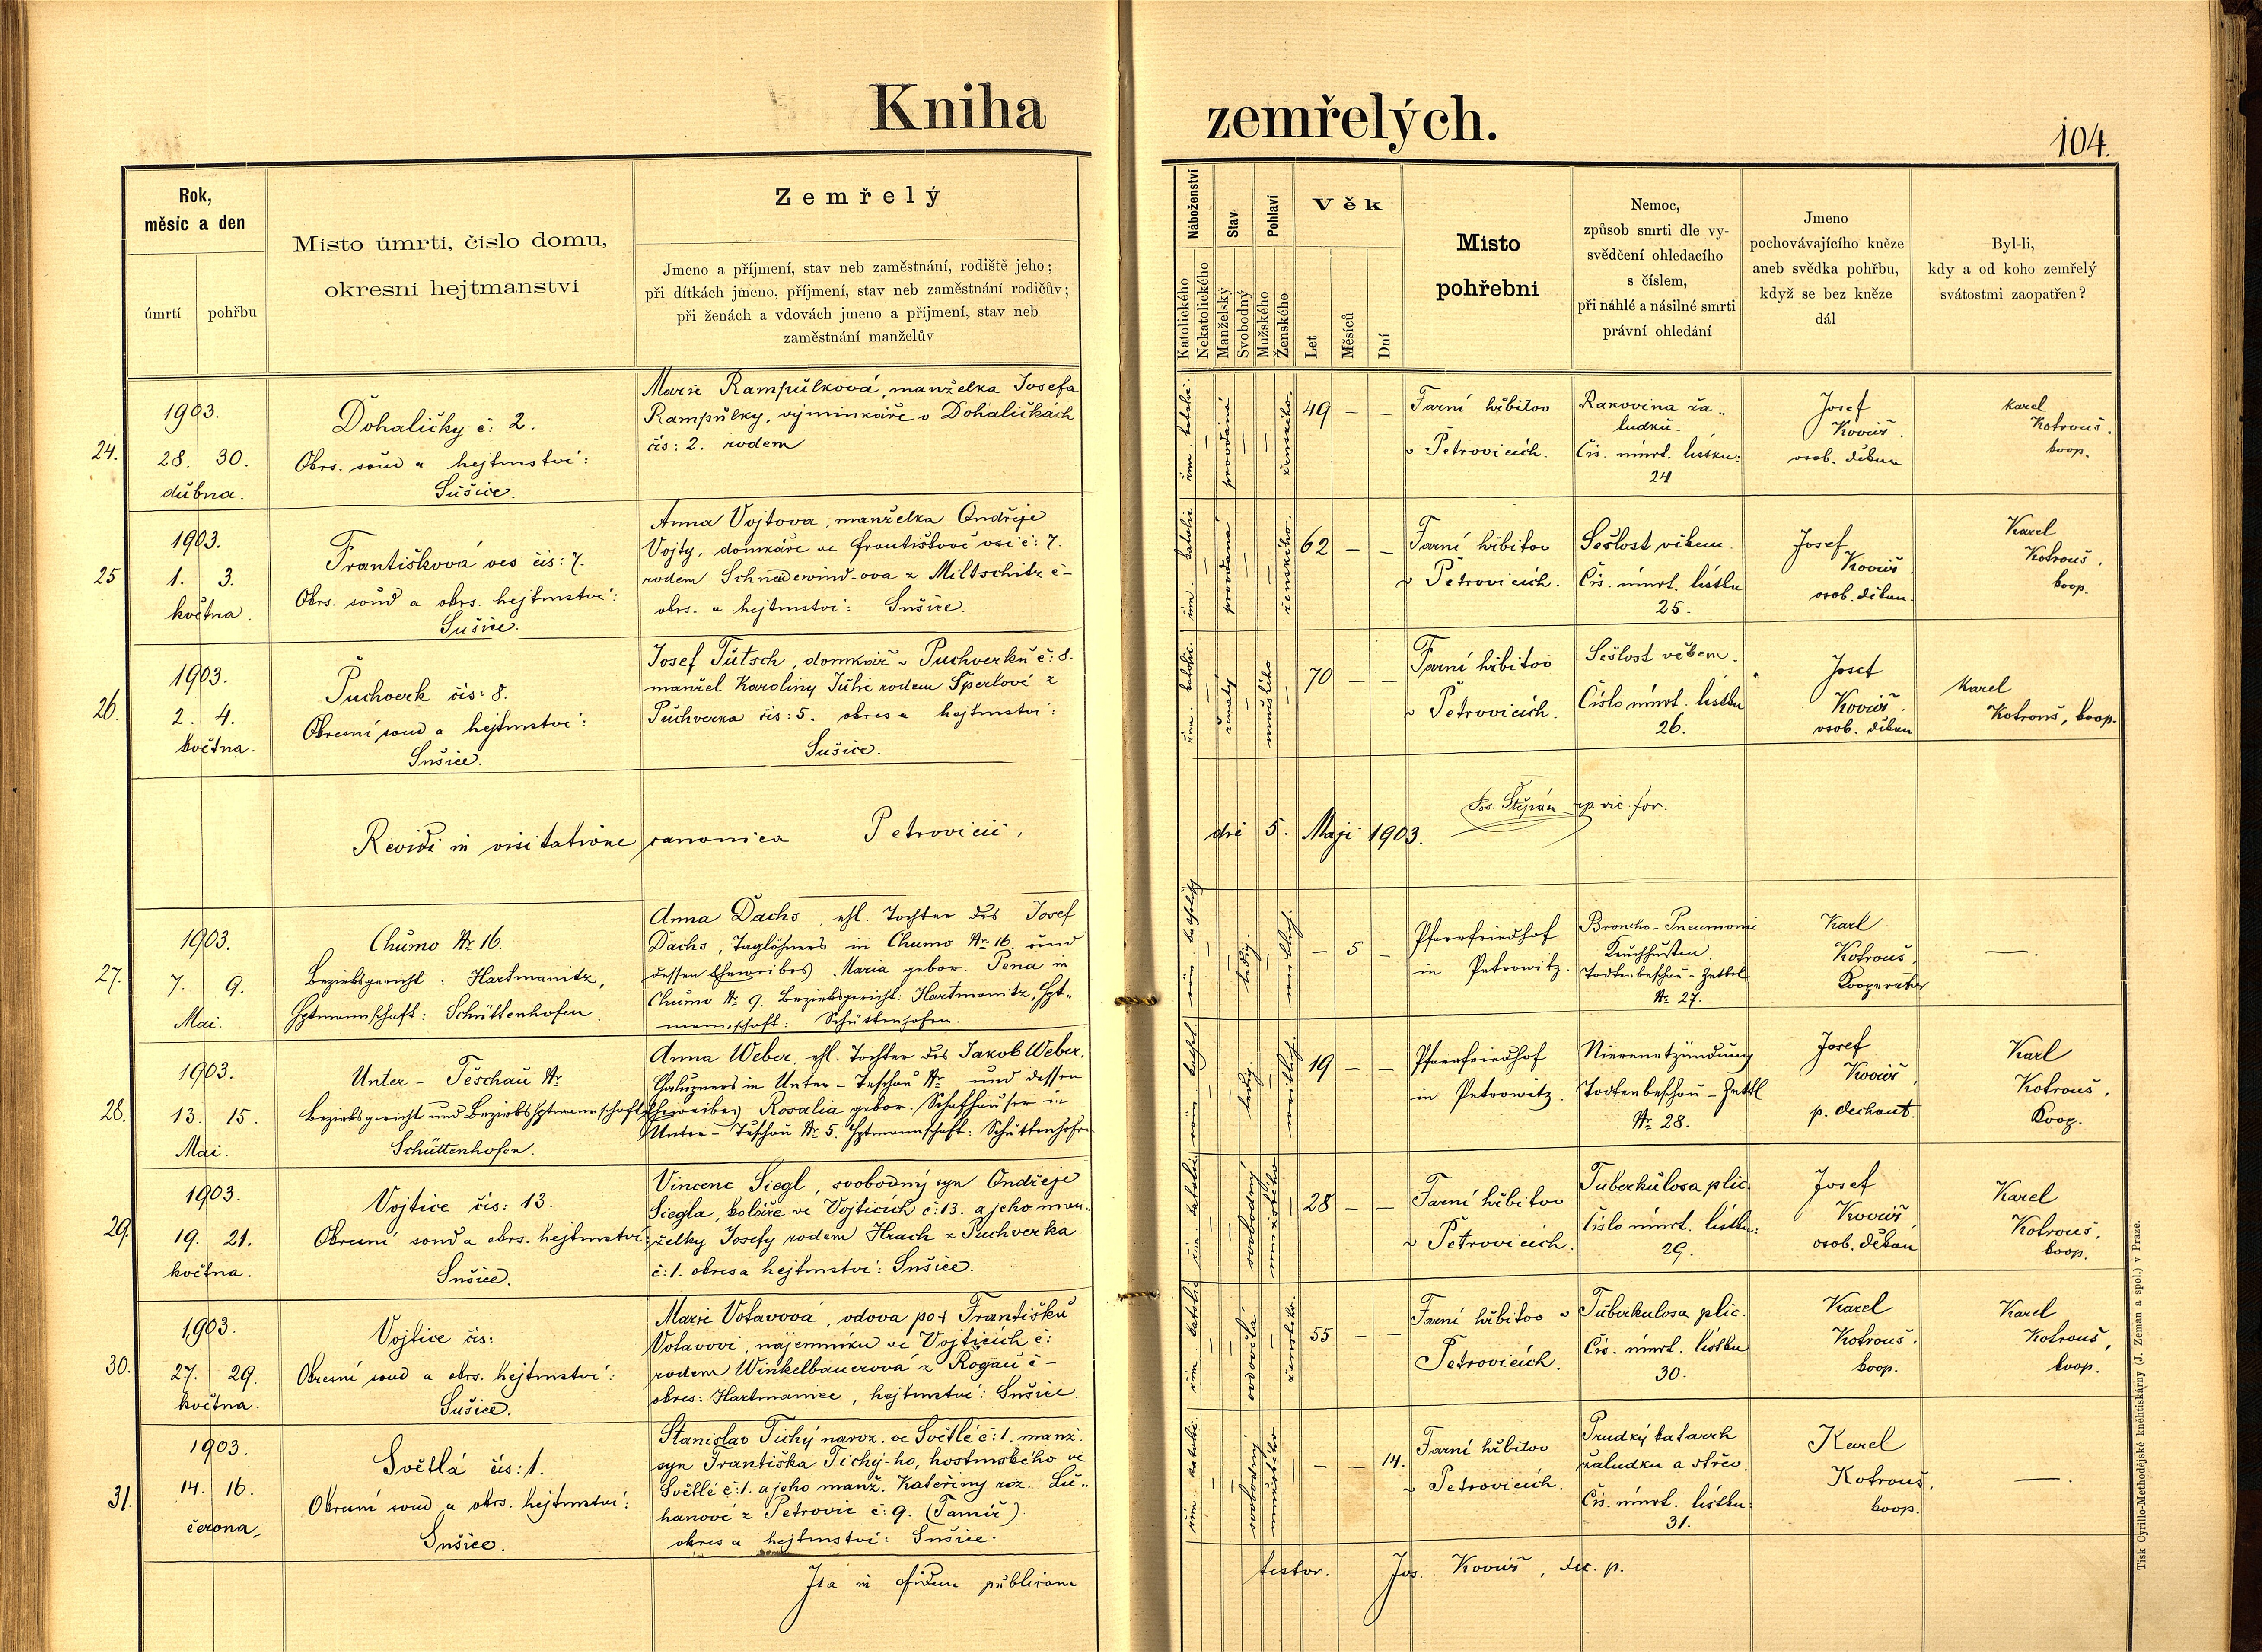 Kniha zemřelých.
104.
Rok,
měsíc a den
úmrtí
pohřbu
Místo úmrtí, číslo domu,
okresní hejtmanství
Zemřelý
Jmeno a příjmení, stav neb zaměstnání, rodiště jeho;
při dítkách jmeno, příjmení, stav neb zaměstnání rodičův;
při ženách a vdovách jmeno a příjmení, stav neb
zaměstnání manželův
Náboženství
Katolického
Nekatolického
Stav
Manželský
Svobodný
Pohlaví
Mužského
Ženského
Věk
Let
Měsíců
Dní
Místo
pohřební
Nemoc,
způsob smrti dle vy-
svědčení ohledacího
s číslem,
při náhlé a násilné smrti
právní ohledání
Jmeno
pochovávajícího kněze
aneb svědka pohřbu,
když se bez kněze
dál
Byl-li,
kdy a od koho zemřelý
svátostmi zaopatřen?
24.
1903.
28. 30.
dubna.
Dohaličky č: 2.
Okrs. soud a hejtmství:
Sušice.
Marie Rampulková, manželka Josefa
Rampulky, výminkáře v Dohaličkách
čís: 2. rodem
řím. katolic.
provdaná
ženského.
49 — —
Farní hřbitov
v Petrovicích.
Rakovina ža-
ludku.
Čís. úmrt. lístku:
24
Josef
Kovář.
osob. děkan
Karel
Kotrouš.
koop.
25
1903.
1. 3.
května.
Františkova ves čís: 7.
Okrs. soud a okrs. hejtmství:
Sušice.
Anna Vojtova, manželka Ondřeje
Vojty, domkáře ve Františkově vsi č: 7.
rodem Schnedewind-ova z Miltschitz č –
okrs. a hejtmství: Sušice.
řím. katolic
provdaná
ženského.
62 — —
Farní hřbitov
v Petrovicích.
Sešlost věkem.
Čís. úmrt. lístku
25.
Josef
Kovář
osob. děkan.
Karel
Kotrouš.
koop.
26.
1903.
2. 4.
května.
Puchverk čís: 8.
Okresní soud a hejtmství:
Sušice.
Josef Tutsch, domkář v Puchverku č: 8.
manžel Karoliny Julie rodem Sperlové z
Puchverka čís: 5. okres a hejtmství:
Sušice.
řím. katolic.
ženatý
mužského
70 — —
Farní hřbitov
v Petrovicích.
Sešlost věkem.
Číslo úmrt. lístku
26.
Josef
Kovář.
osob. děkan
Karel
Kotrouš, koop.
Revidi in visitatione canonica Petrovicii, die 5. Maji 1903.
Jos. Štěpán vic. for.
27.
1903.
7. 9.
Mai.
Chumo Nr. 16.
Bezirksgericht: Hartmanitz,
Hptmannschaft: Schüttenhofen.
Anna Dachs, ehl. Tochter des Josef
Dachs, Taglöhners in Chumo Nr. 16. und
dessen Eheweibes Maria gebor. Pena in
Chumo Nr. 9. Bezirksgericht: Hartmanitz, Hpt-
mannschaft: Schüttenhofen.
ledig.
weiblich.
— 5 —
Pfarrfriedhof
in Petrowitz.
Broncho-Pneumonie
Keuchhusten.
Todtenbeschau-Zettel
Nr. 27.
Karl
Kotrouš,
Kooperator
—
28.
1903.
13. 15.
Mai.
Unter-Teschau Nr.
Bezirksgericht und Bezirkshptmannschaft
Schüttenhofen.
Anna Weber, ehl. Tochter des Jakob Weber,
Chaluzners in Unter-Teschau Nr. und dessen
Eheweibes Rosalia gebor. Schafhauser in
Unter-Teschau Nr. 5. Hptmannschaft: Schüttenhofen
ledig.
weiblich.
19 — —
Pfarrfriedhof
in Petrowitz.
Nierenentzündung
Todtenbeschau-Zettl
Nr. 28.
Josef
Kovář,
p. dechant.
Karl
Kotrouš,
Koop.
29.
1903.
19. 21.
května.
Vojtice čís: 13.
Okresní soud a okrs. hejtmství:
Sušice.
Vincenc Siegl, svobodný syn Ondřeje
Siegla, koláře ve Vojticích č: 13. a jeho man-
želky Josefy rodem Hrach z Puchverka
č: 1. okres a hejtmství: Sušice.
řím. katolic.
svobodný
mužského
28 — —
Farní hřbitov
v Petrovicích.
Tuberkulosa plic.
Číslo úmrt. lístku:
29.
Josef
Kovář
osob. děkan
Karel
Kotrouš.
koop.
30.
1903.
27. 29.
května.
Vojtice čís:
Okresní soud a okrs. hejtmství:
Sušice.
Marie Votavová, vdova po † Františku
Votavovi, nájemníku ve Vojticích č:
rodem Winkelbauerova z Rogau č –
okres: Hartmanice, hejtmství: Sušice.
řím. katolic
ovdovělá
ženského.
55 — —
Farní hřbitov v
Petrovicích.
Tuberkulosa plic.
Čís. úmrt. lístku
30.
Karel
Kotrouš.
koop.
Karel
Kotrouš,
koop.
31.
1903.
14. 16.
června.
Světlá čís: 1.
Okresní soud a okrs. hejtmství:
Sušice.
Stanislav Tichý naroz. ve Světlé č: 1. manž.
syn Františka Tichý-ho, hostinského ve
Světlé č: 1. a jeho manž. Kateřiny roz. Lu-
hanové z Petrovic č: 9.
okres a hejtmství: Sušice.
řím. katolic.
svobodný
mužského
— — 14.
Farní hřbitov
v Petrovicích.
Prudký katarrh
žaludku a střev.
Čís. úmrt. lístku:
31.
Karel
Kotrouš.
koop.
—
Ita in fidem publicam testor. Jos. Kovář, dec. p.
Tisk Cyrillo-Methodějské knihtiskárny (J. Zeman a spol.) v Praze.